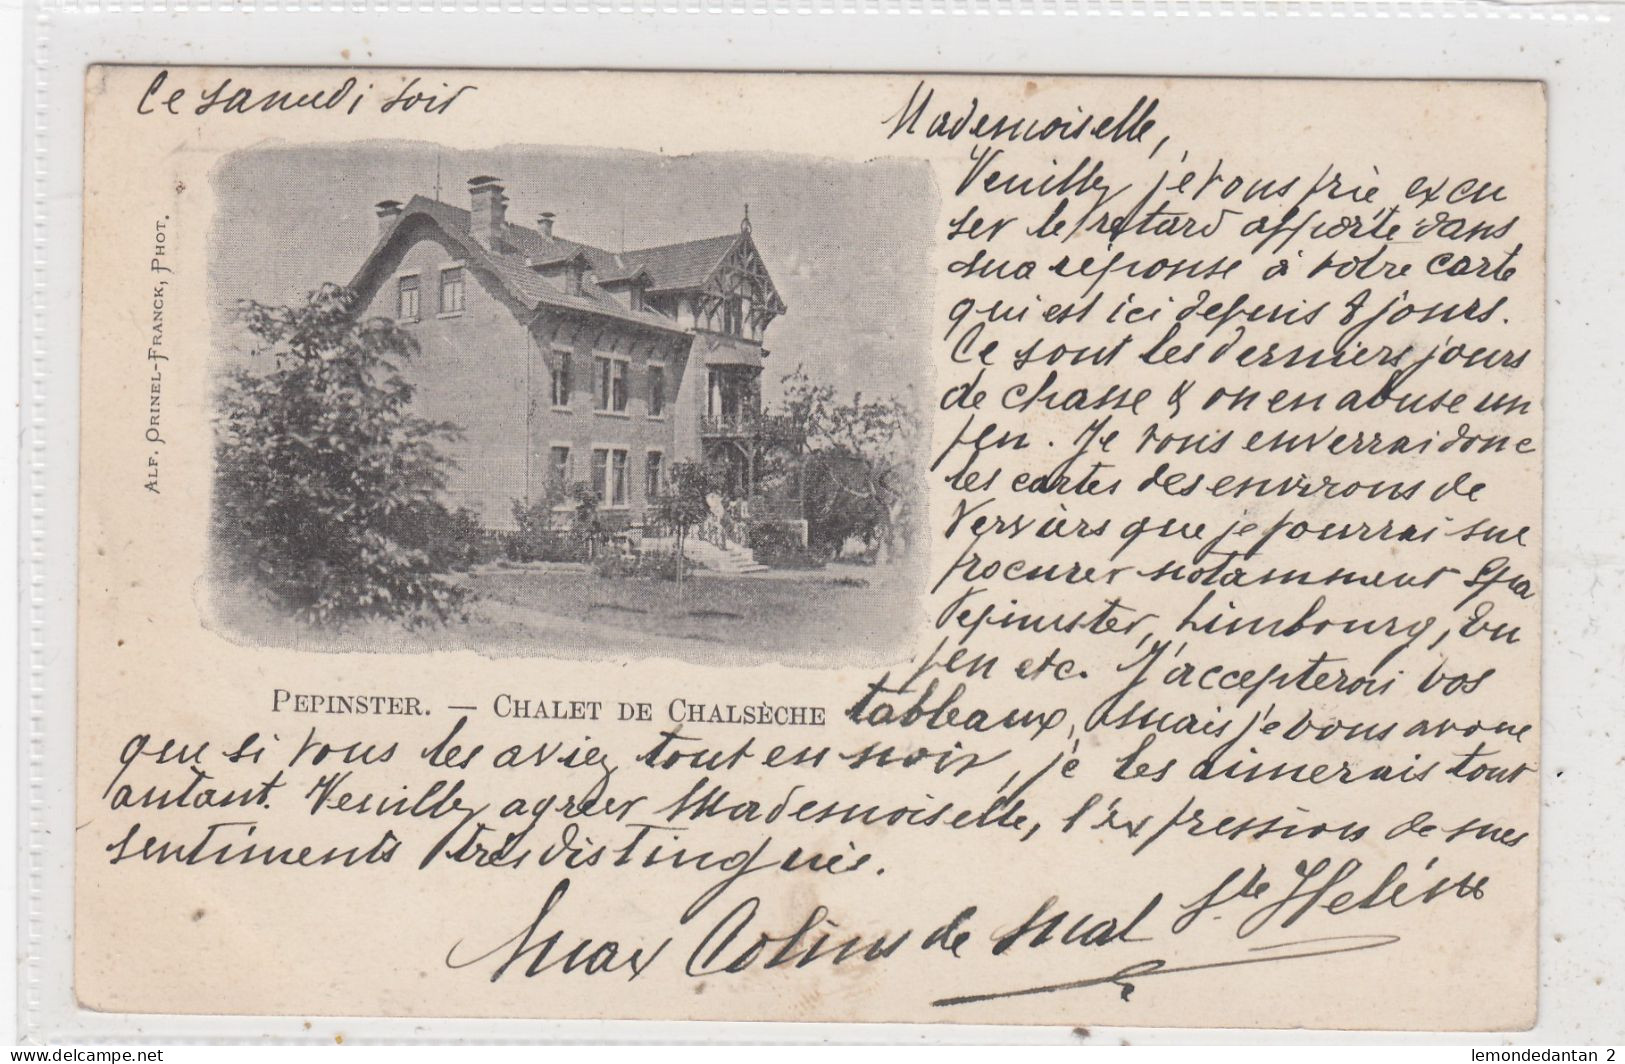 Ce samedi soir
Mademoiselle,
Veuillez je vous prie excu
ser le retard apporté dans
ma réponse à votre carte
qui est ici depuis 8 jours.
Ce sont les derniers jours
de chasse & on en abuse un
peu. Je vous enverrai donc
les cartes des environs de
Verviers que je pourrai me
procurer notamment Spa
Pepinster, Limbourg, Eu
pen etc. J'accepterai vos
tableaux, mais je vous avoue
que si vous les aviez tout en noir, je les aimerais tout
autant. Veuillez agréer Mademoiselle, l'expression de mes
sentiments très distingués.
Max Colins de
Ste Hélène
ALF. ORINEL-FRANCK, PHOT.
PEPINSTER. — CHALET DE CHALSÈCHE
www.delcampe.net
lemondedantan 2